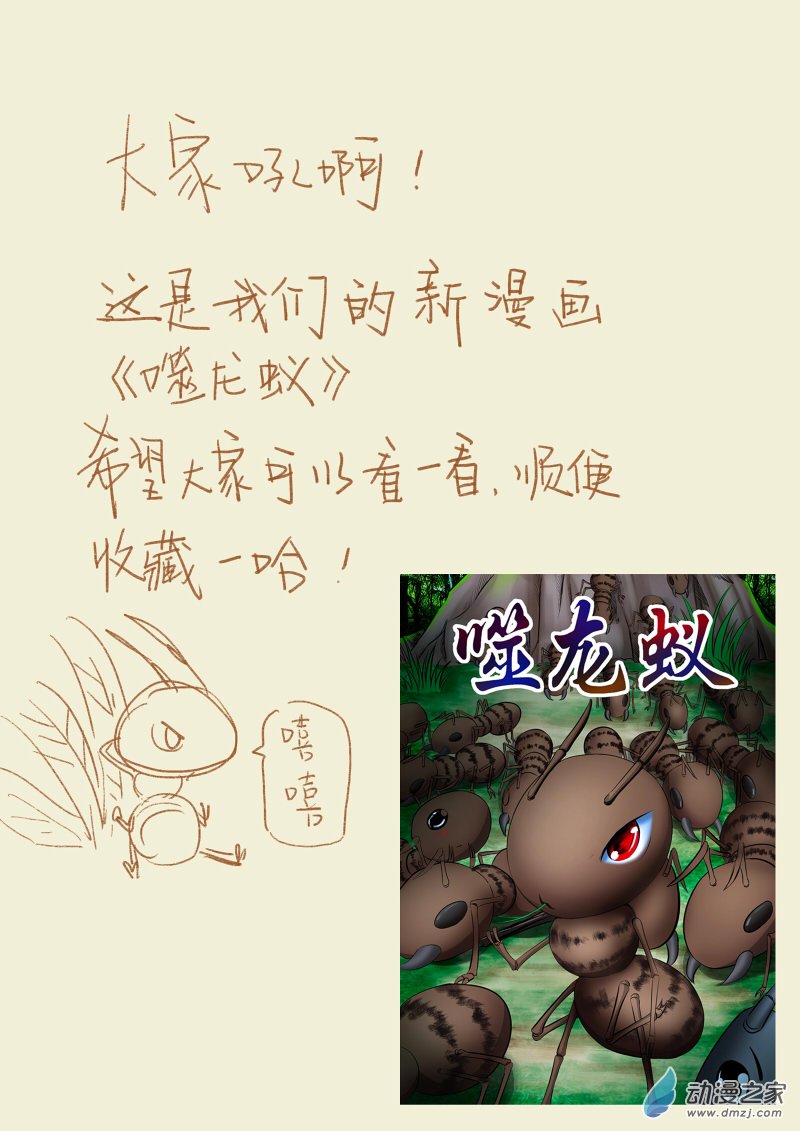 大家吼啊！
这是我们的新漫画
《噬龙蚁》
希望大家可以看一看，顺便
收藏一哈！
嘻嘻
噬龙蚁
动漫之家
www.dmzj.com